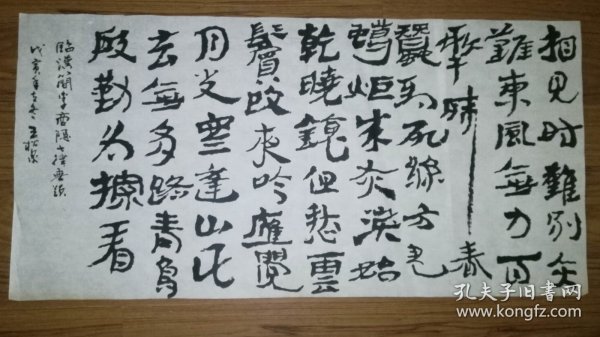 相見時難別亦
難東風無力百
春
蠶到死絲方盡
蠟炬成灰淚始
乾曉鏡但愁雲
鬢改夜吟應覺
月光寒蓬山此
去無多路青鳥
殷勤為探看
臨漢簡書李商隱七律無題
戊寅年
孔夫子旧书网
www.kongfz.com